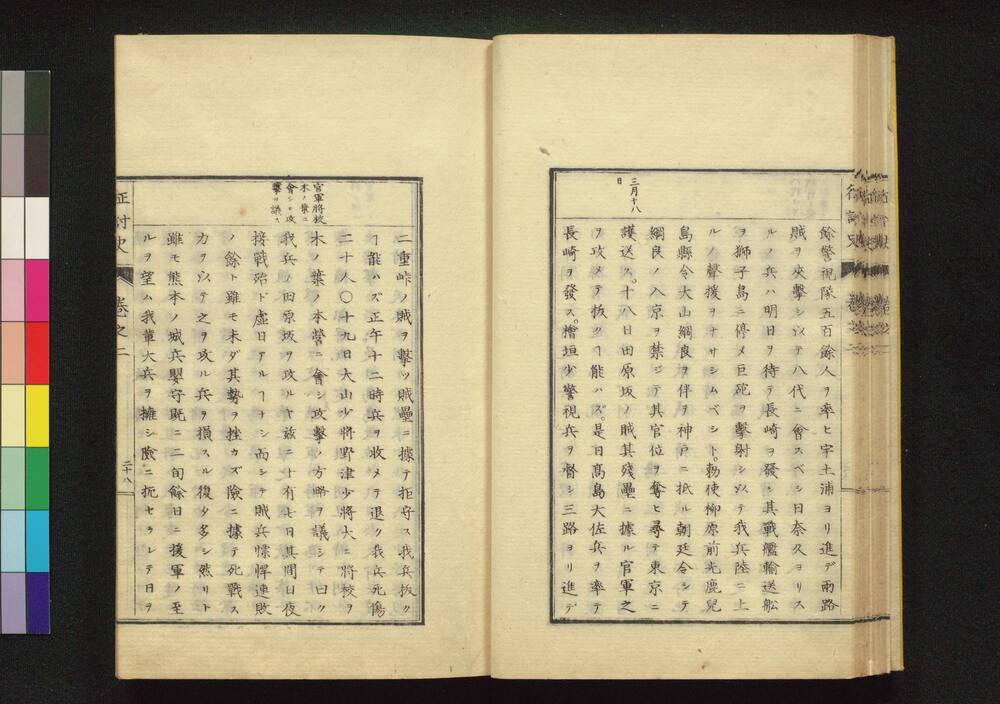 餘警視隊五百餘人ヲ率ヒ宇土浦ヨリ進デ兩路
賊ヲ夾擊シ以テ八代ニ會スベシ日奈久ヨリス
ルノ兵ハ明日ヲ待テ長崎ヲ發シ其戰艦輸送船
ヲ獅子島ニ停メ巨砲ヲ擊射シ以テ我兵陸ニ上
ルノ聲援ヲナサシムベシト。勅使柳原前光鹿兒
島縣令大山綱良ヲ伴ヲ神戸ニ抵ル朝廷令シテ
綱良ノ入京ヲ禁ジテ其官位ヲ奪ヒ尋テ東京ニ
三月十八
日
護送ス。十八日田原坂ノ賊其殘壘ニ據ル官軍之
ヲ攻メテ抜クヿ能ハズ。是日髙島大佐兵ヲ率テ
長崎ヲ發ス。檜垣少警視兵ヲ督シ三路ヨリ進デ
二重峠ノ賊ヲ擊ツ賊壘ニ據テ拒守ス我兵抜ク
ヿ能ハズ正午十二時兵ヲ收メテ退ク我兵死傷
二十人〇十九日大山少將野津少將大ニ將校ヲ
官軍將校
木ノ葉ニ
會シテ攻
擊ヲ議ス
木ノ葉ノ本營ニ會シ攻擊ノ方略ヲ議シテ曰ク
我兵ノ田原坂ヲ攻ルヤ兹ニ十有七日其間日夜
接戰殆ド虚日アルヿナシ而シテ賊兵慓悍連敗
ノ餘ト雖モ未ダ其勢ヲ挫カズ險ニ據テ死戰ス
力ヲ以テ之ヲ攻ル兵ヲ損スル復タ多シ然リト
雖モ熊本ノ城兵嬰守既ニ二旬餘日ニ援軍ノ至
ルヲ望ム我輩大兵ヲ擁シ險ニ扼セラレテ日ヲ
征討史
卷之二
二十八